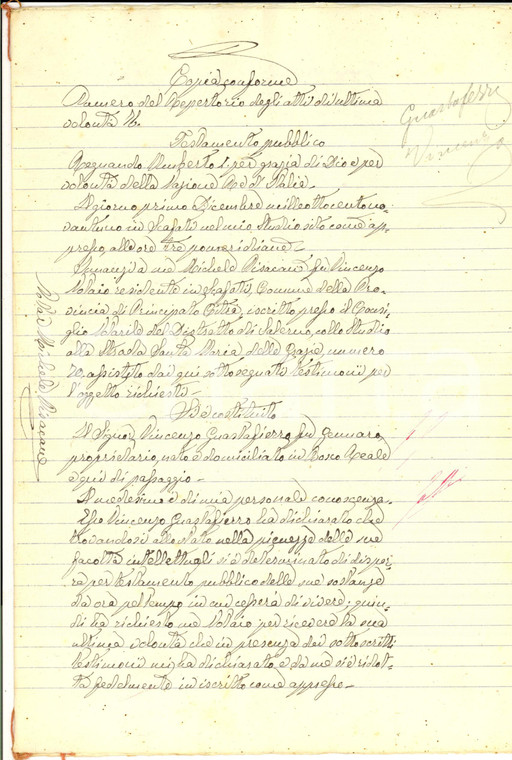 Copia conforme
Numero del Repertorio degli atti di ultima
volontà
Testamento pubblico
Regnando Umberto I. per grazia di Dio e per
volontà della Nazione Re d'Italia.
Il giorno primo Dicembre milleottocentono-
vantuno in Scafati nel mio Studio sito come ap-
presso, alle ore tre pomeridiane.
Innanzi a me Michele Pisacane fu Vincenzo
Notaio residente in Scafati, Comune della Pro-
vincia di Principato Citra, iscritto presso il Consi-
glio Notarile del Distretto di Salerno, collo Studio
alla Strada Santa Maria delle Grazie, numero
assistito dai qui sottosegnati testimonii per
l'oggetto richiesti.
Si è costituito
Il Signor Vincenzo Guastafierro fu Gennaro
proprietario, nato e domiciliato in Bosco Reale
e qui di passaggio.
Il medesimo è di mia personale conoscenza.
Esso Vincenzo Guastafierro ha dichiarato che
trovandosi allo stato nella pienezza delle sue
facoltà intellettuali si è determinato di dispor-
re per testamento pubblico delle sue sostanze
da ora pel tempo in cui cesserà di vivere; quin-
di ha richiesto me Notaio per ricevere la sua
ultima volontà che in presenza dei sottoscritti
testimonii mi ha dichiarato, e da me si è ridot-
ta fedelmente in iscritto come appresso.
Guastafierro
Vincenzo
Notar Michele Pisacane